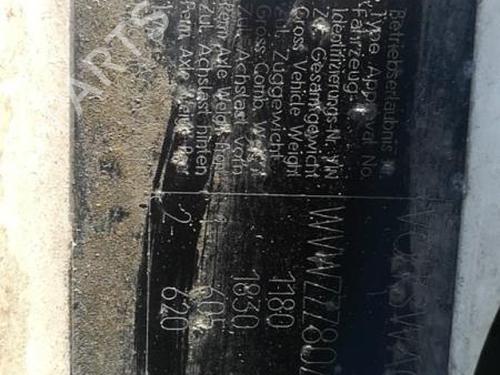 Betriebserlaubnis
Type Approval No.
Fahrzeug-
Identifizierungs-Nr.
Zul. Gesamtgewicht
Gross Vehicle Weight
Zul. Zuggewicht
Gross Comb. Weight
Zul. Achslast vorn
Perm. Axle Weight front
Zul. Achslast hinten
Perm. Axle Weight Rear
VOLKSWAG
WVWZZZ80
1180
1830
1 605
2 620